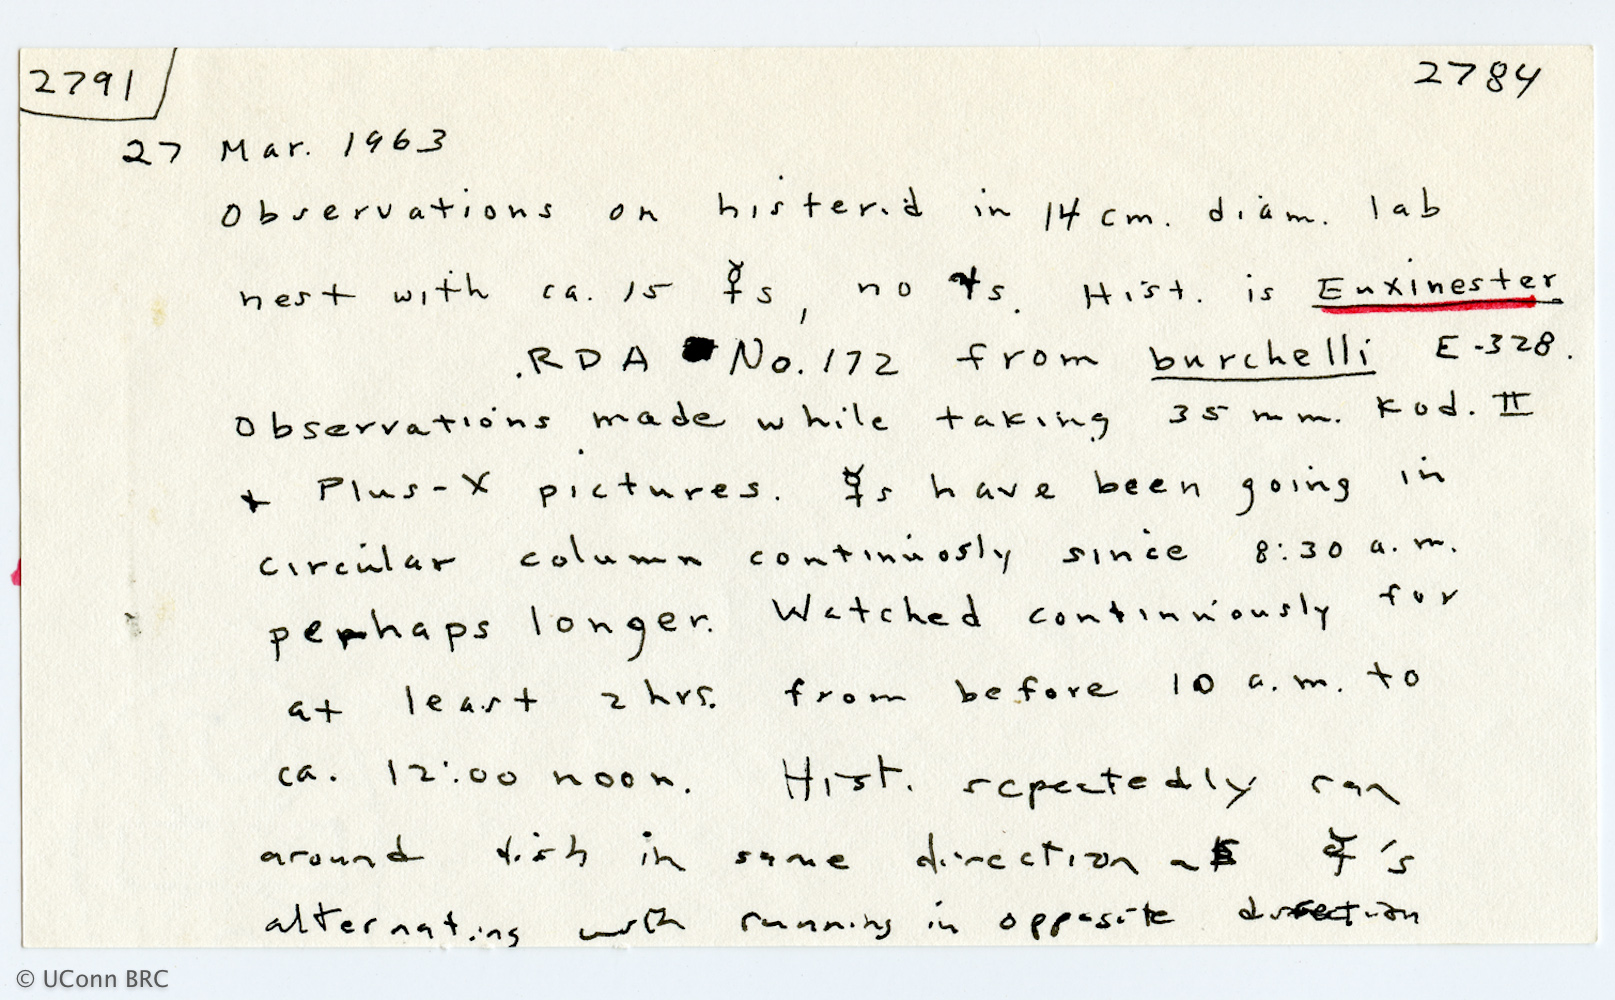 2791
2784
27 Mar. 1963
Observations on histerid in 14 cm. diam. lab
nest with ca. 15 ☿s, no s. Hist. is Euxinester
.RDA No. 172 from burchelli E-328.
Observations made while taking 35 mm. Kod. II
+ Plus-X pictures. ☿s have been going in
circular column continuosly since 8:30 a.m.
perhaps longer. Watched continuously for
at least 2 hrs. from before 10 a.m. to
ca. 12:00 noon. Hist. repeatedly ran
around dish in same direction as ☿'s
alternating with running in opposite direction
© UConn BRC